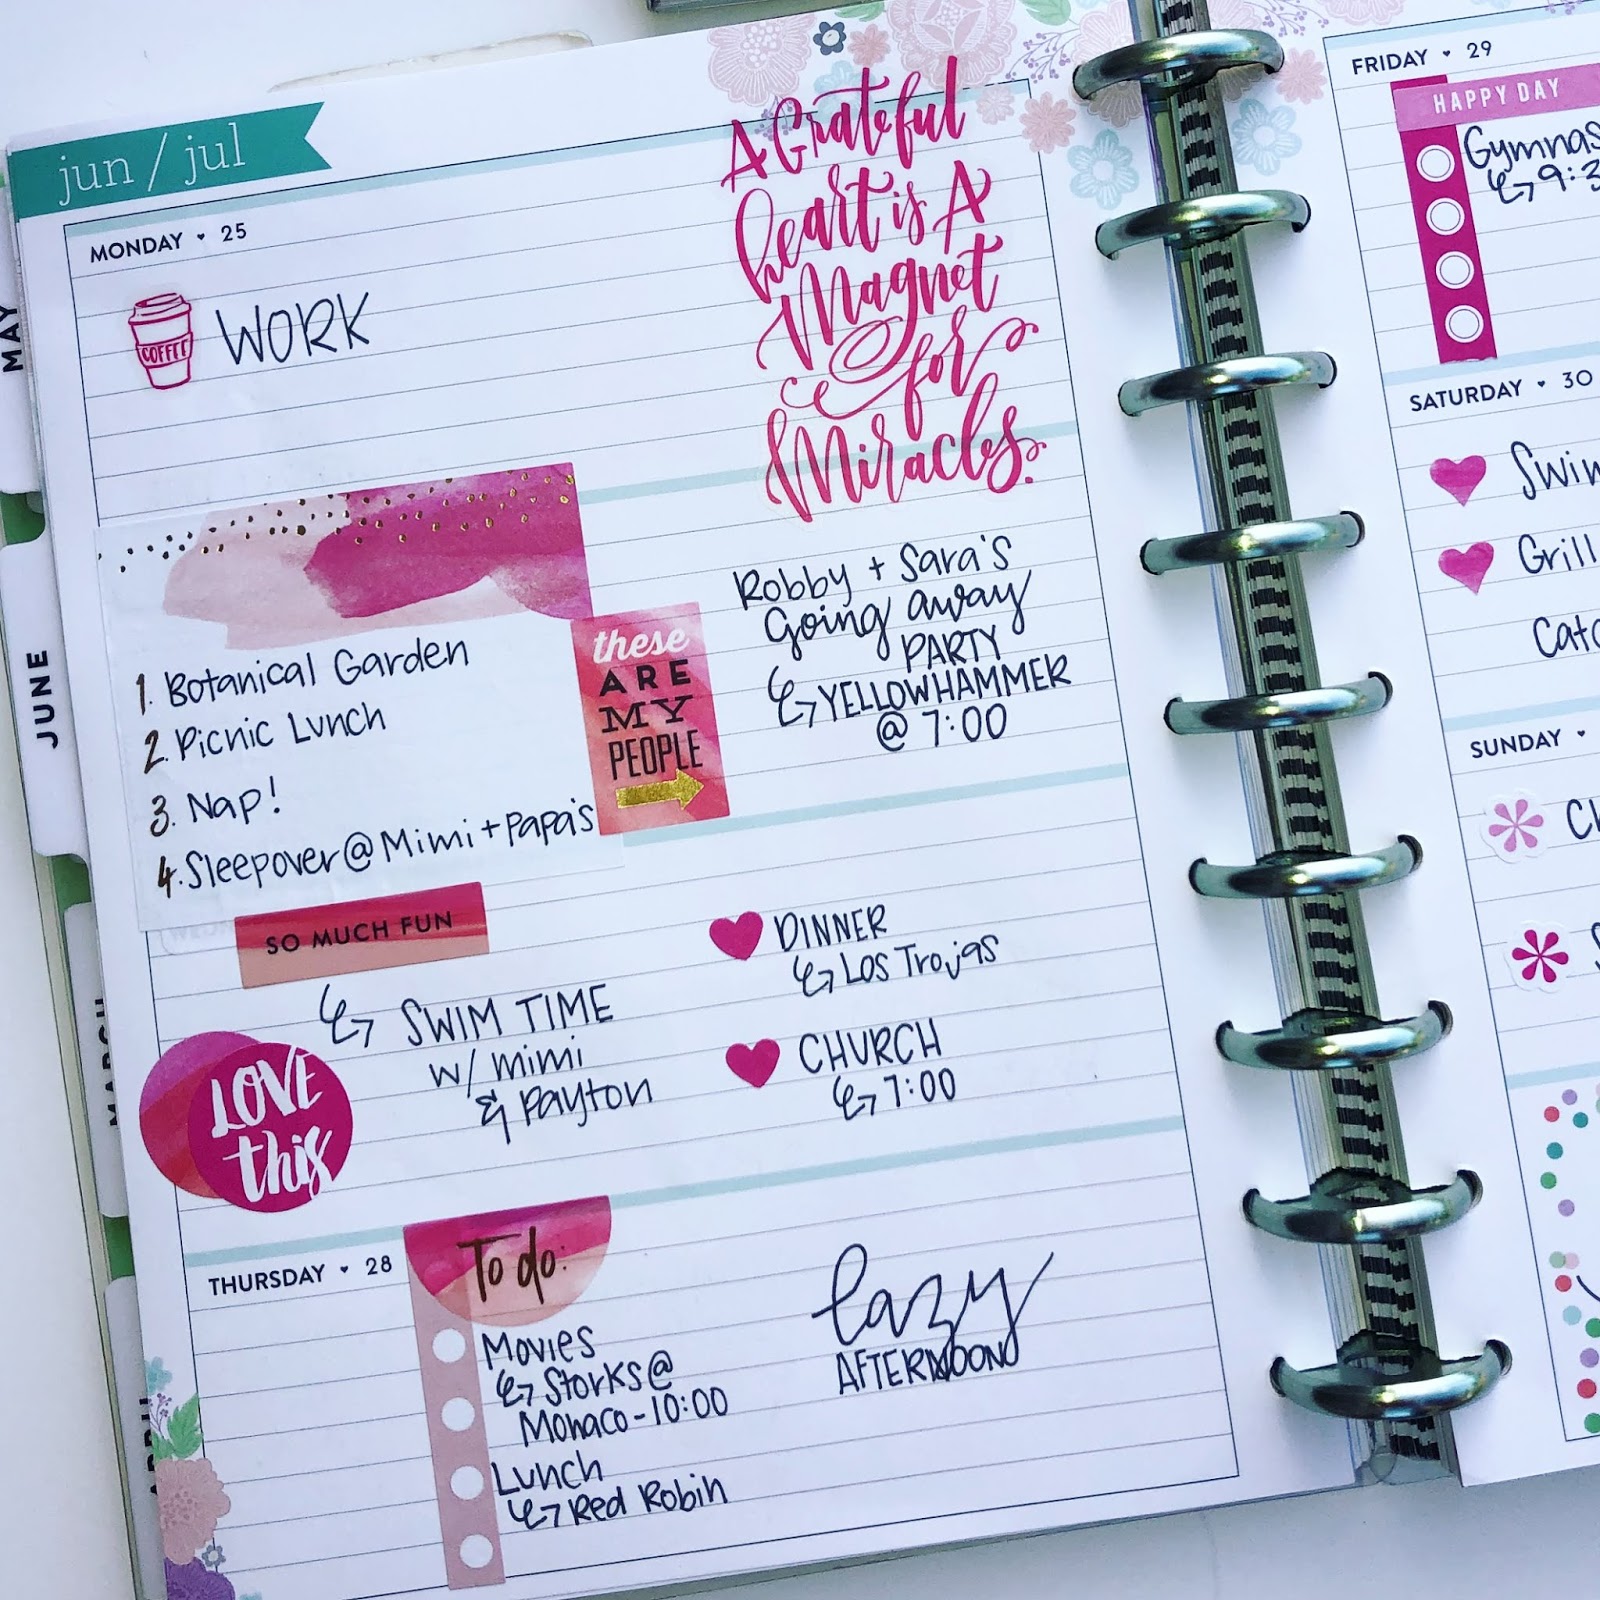 jun / jul
MONDAY ♥ 25
COFFEE
WORK
A Grateful
heart is A
Magnet
for
Miracles.
1. Botanical Garden
2. Picnic Lunch
3. Nap!
4. Sleepover @ Mimi + Papa's
these
ARE
MY
PEOPLE
Robby + Sara's
Going Away
PARTY
↳ YELLOWHAMMER
@ 7:00
SO MUCH FUN
↳ SWIM TIME
w/ mimi
& Payton
LOVE
this
DINNER
↳ Los Trojas
CHURCH
↳ 7:00
THURSDAY ♥ 28
To do:
Movies
↳ Storks @
Monaco - 10:00
Lunch
↳ Red Robin
Lazy
AFTERNOON
FRIDAY ♥ 29
HAPPY DAY
Gymnas
↳ 9:3
SATURDAY ♥ 30
Swim
Grill
SUNDAY ♥
MAY
JUNE
MARCH